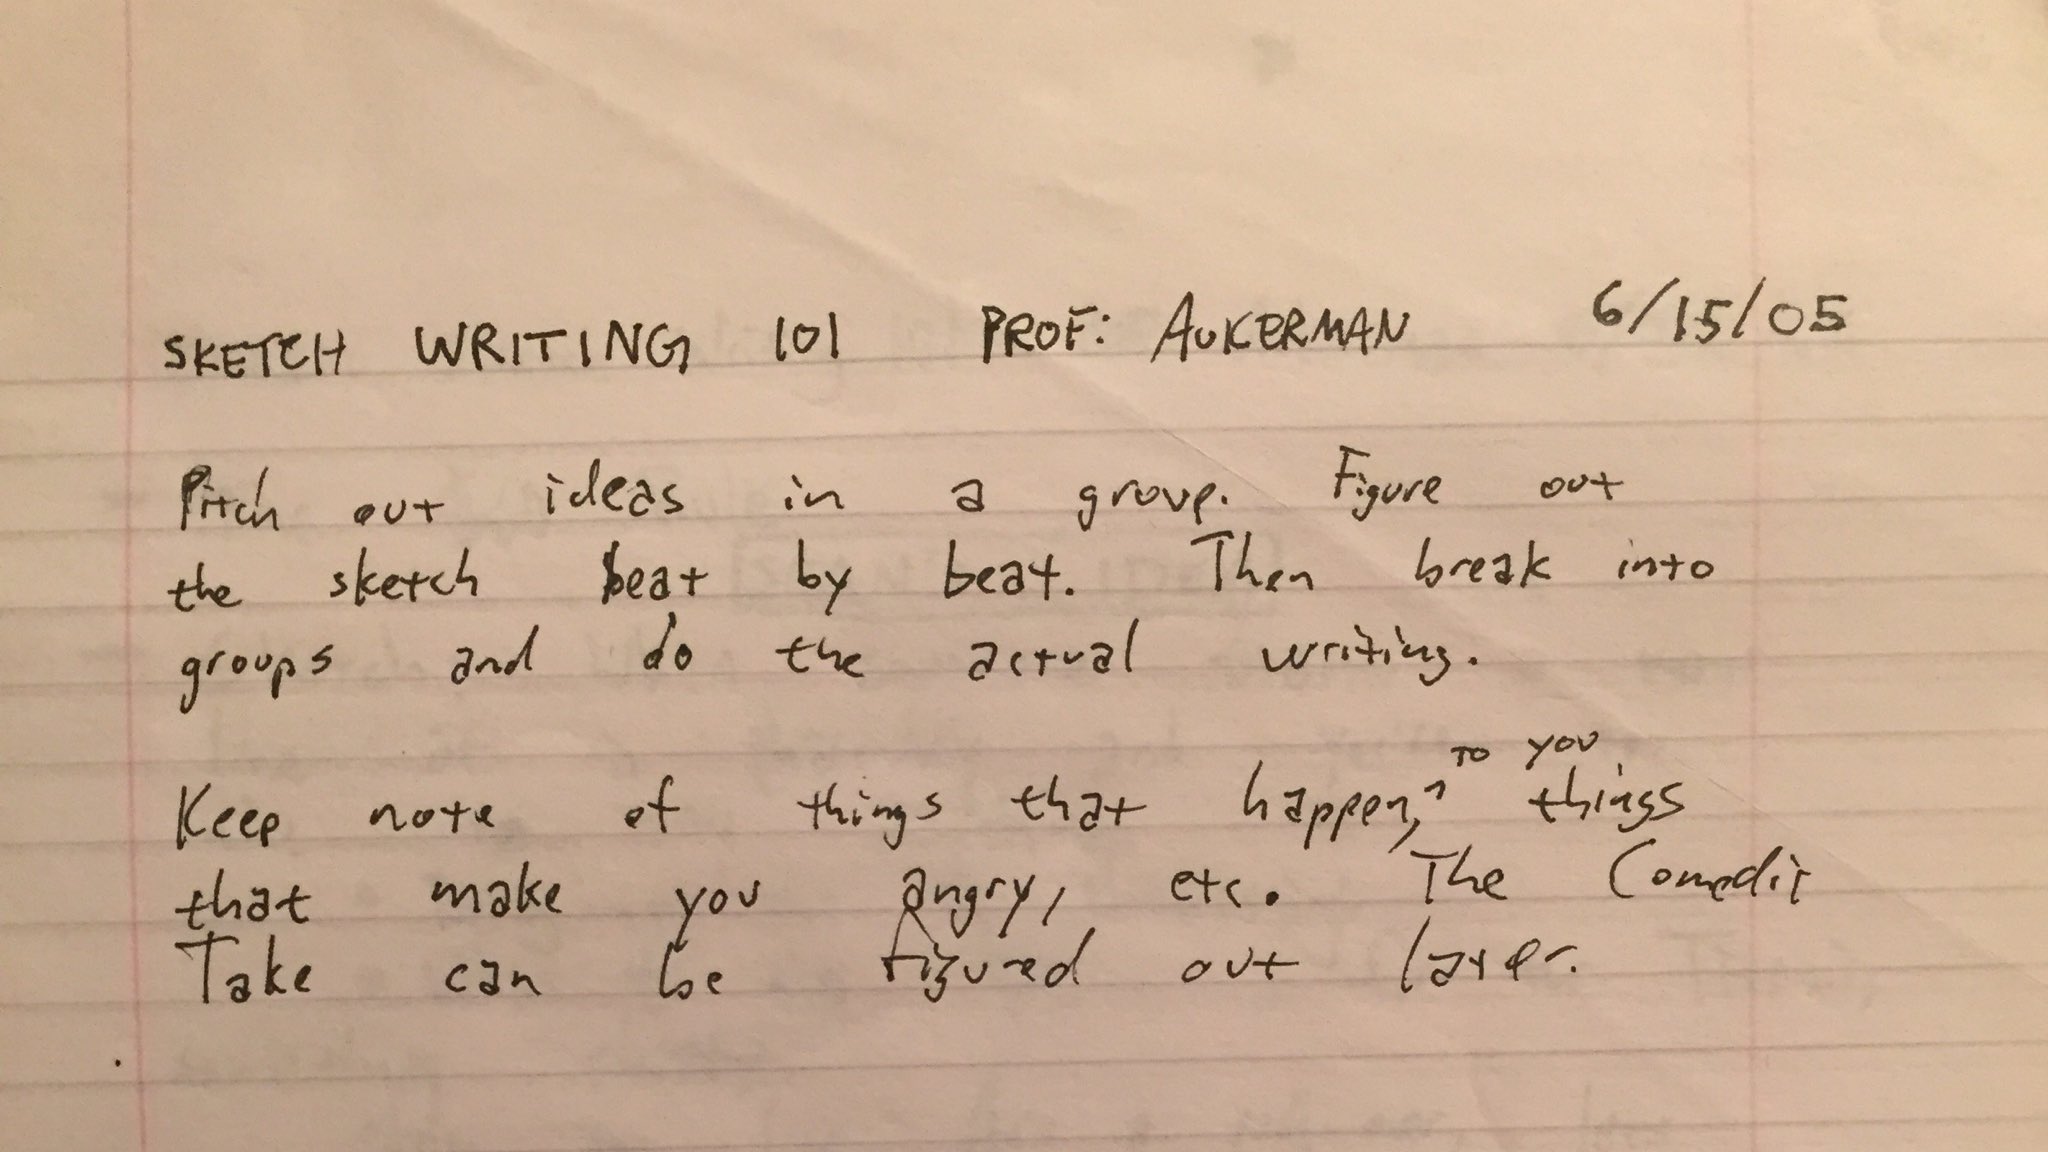 SKETCH WRITING 101 PROF: AUKERMAN 6/15/05
Pitch out ideas in a group. Figure out
the sketch beat by beat. Then break into
groups and do the actual writing.
Keep note of things that happen, to you things
that make you angry, etc. The Comedic
Take can be figured out later.